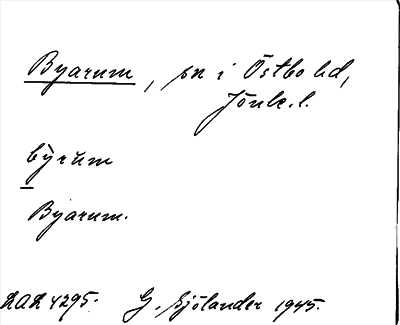 Byarum, sn i Östbo hd,
Jönk. l.
bỳrùm
Byarum.
DAL 4295. G. Sjölander 1945.